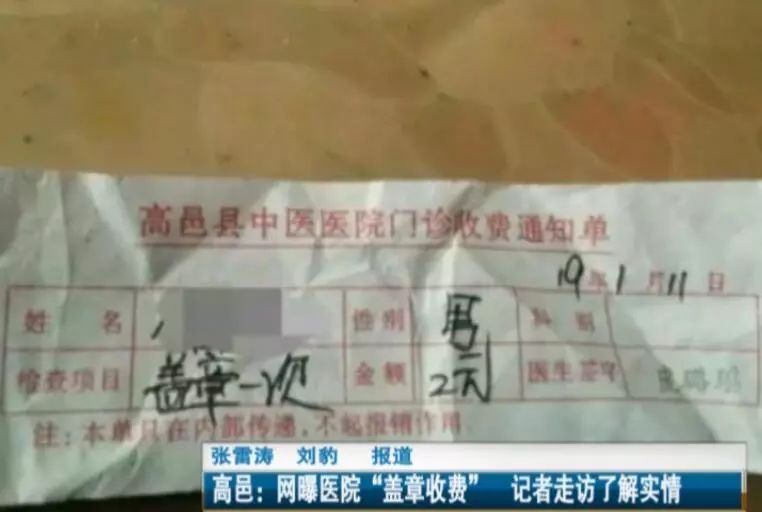 高邑县中医医院门诊收费通知单
19年1月11日
姓名 性别 男 科别
检查项目 盖章一次 金额 2元 医生签字
注:本单只在内部传递,不起报销作用
张雷涛 刘豹 报道
高邑:网曝医院“盖章收费” 记者走访了解实情